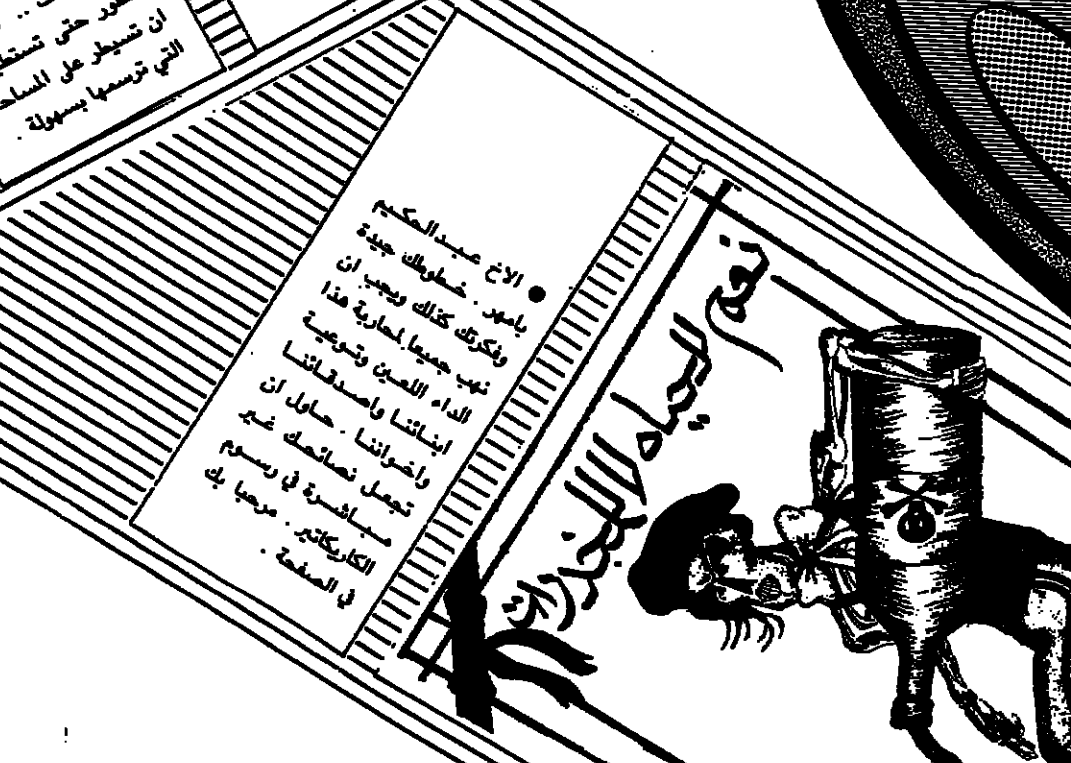 حتى تستطيع
ان تسيطر على المساحة
التي ترسمها بسهولة .
● الأخ عبدالحكيم
بامهر . خطوطك جيدة
وفكرتك كذلك ويجب ان
نهب جميعا لمحاربة هذا
الداء اللعين وتوعية
ابنائنا واصدقائنا
واخواننا . حاول ان
تجعل نصائحك غير
مباشرة في رسوم
الكاريكاتير . مرحبا بك
في الصفحة .
نعم للحياه لا للمخدرات